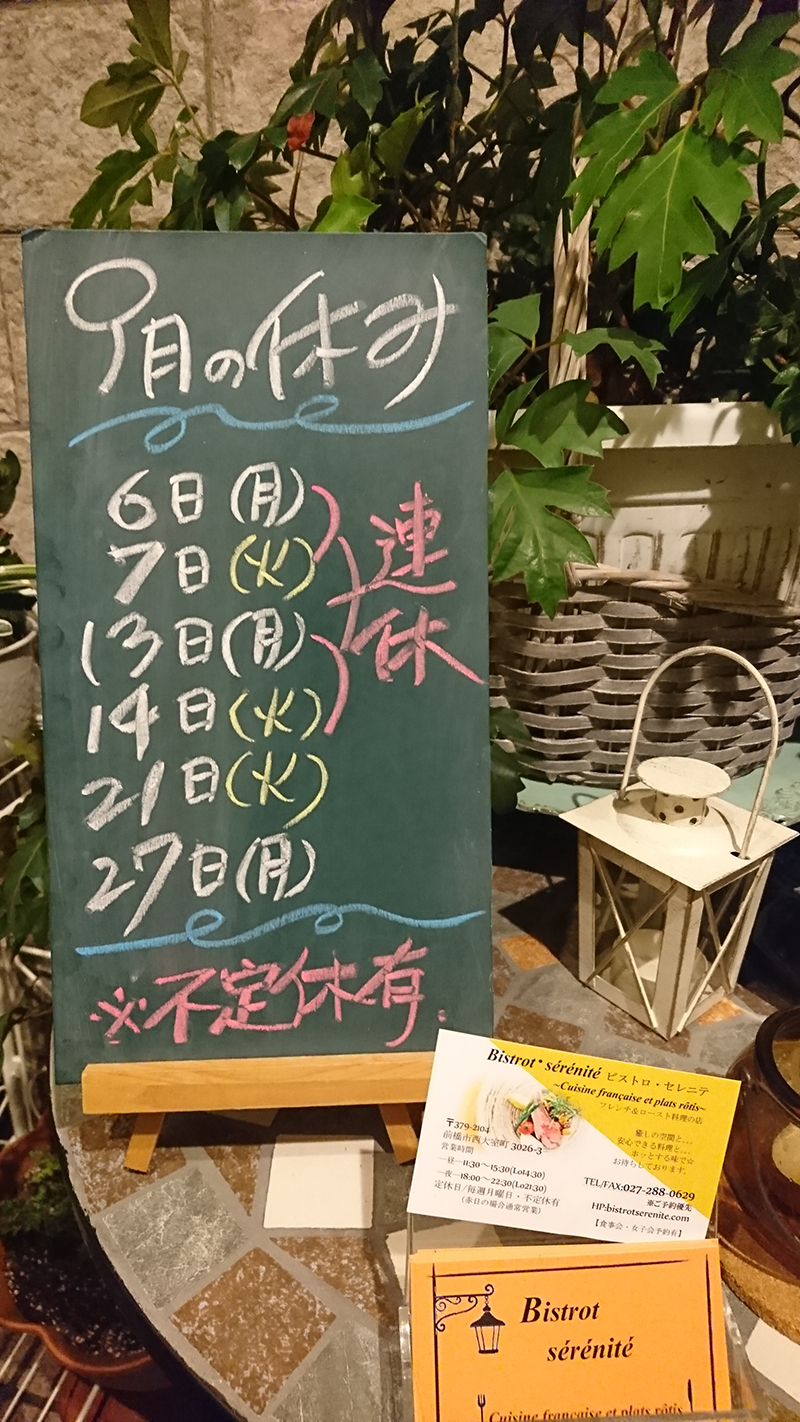 9月の休み
6日(月)
7日(火)
13日(月)
14日(火)
21日(火)
27日(月)
連休
※不定休有
Bistrot*sérénité ビストロ・セレニテ
~Cuisine française et plats rôtis~
フレンチ&ロースト料理の店
〒379-2104
前橋市西大室町 3026-3
営業時間
―昼―11:30～15:30(Lo14:30)
―夜―18:00～22:30(Lo21:30)
定休日/毎週月曜日・不定休有
(赤日の場合通常営業)
癒しの空間と…
安心できる料理と…
ホッとする味で☆
お待ちしております。
TEL/FAX:027-288-0629
※ご予約優先
HP:bistrotserenite.com
【食事会・女子会予約有】
Bistrot
sérénité
Cuisine française et plats rôtis